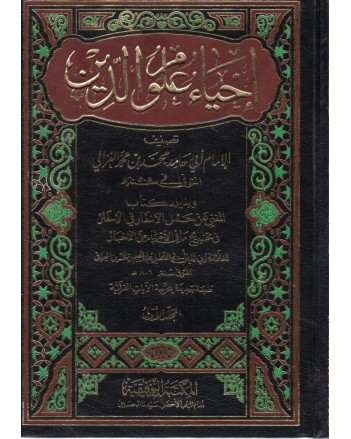 إحياء علوم الدين
تصنيف
الإمام أبي حامد محمد بن محمد الغزالي
المتوفى في ٥٠٥ هـ
وبذيله كتاب
المغني عن حمل الأسفار في الأسفار
في تخريج ما في الإحياء من الأخبار
للعلامة زين الدين أبي الفضل عبد الرحيم بن الحسين العراقي
المتوفى سنة ٨٠٦ هـ
طبعة جديدة مخرجة الآيات القرآنية
المجلد الأول
المكتبة التوفيقية
أمام الباب الأخضر - سيدنا الحسين